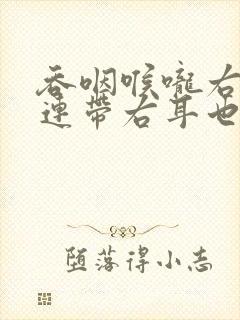 吞咽喉嚨右
連帶右耳也
堕落得小志